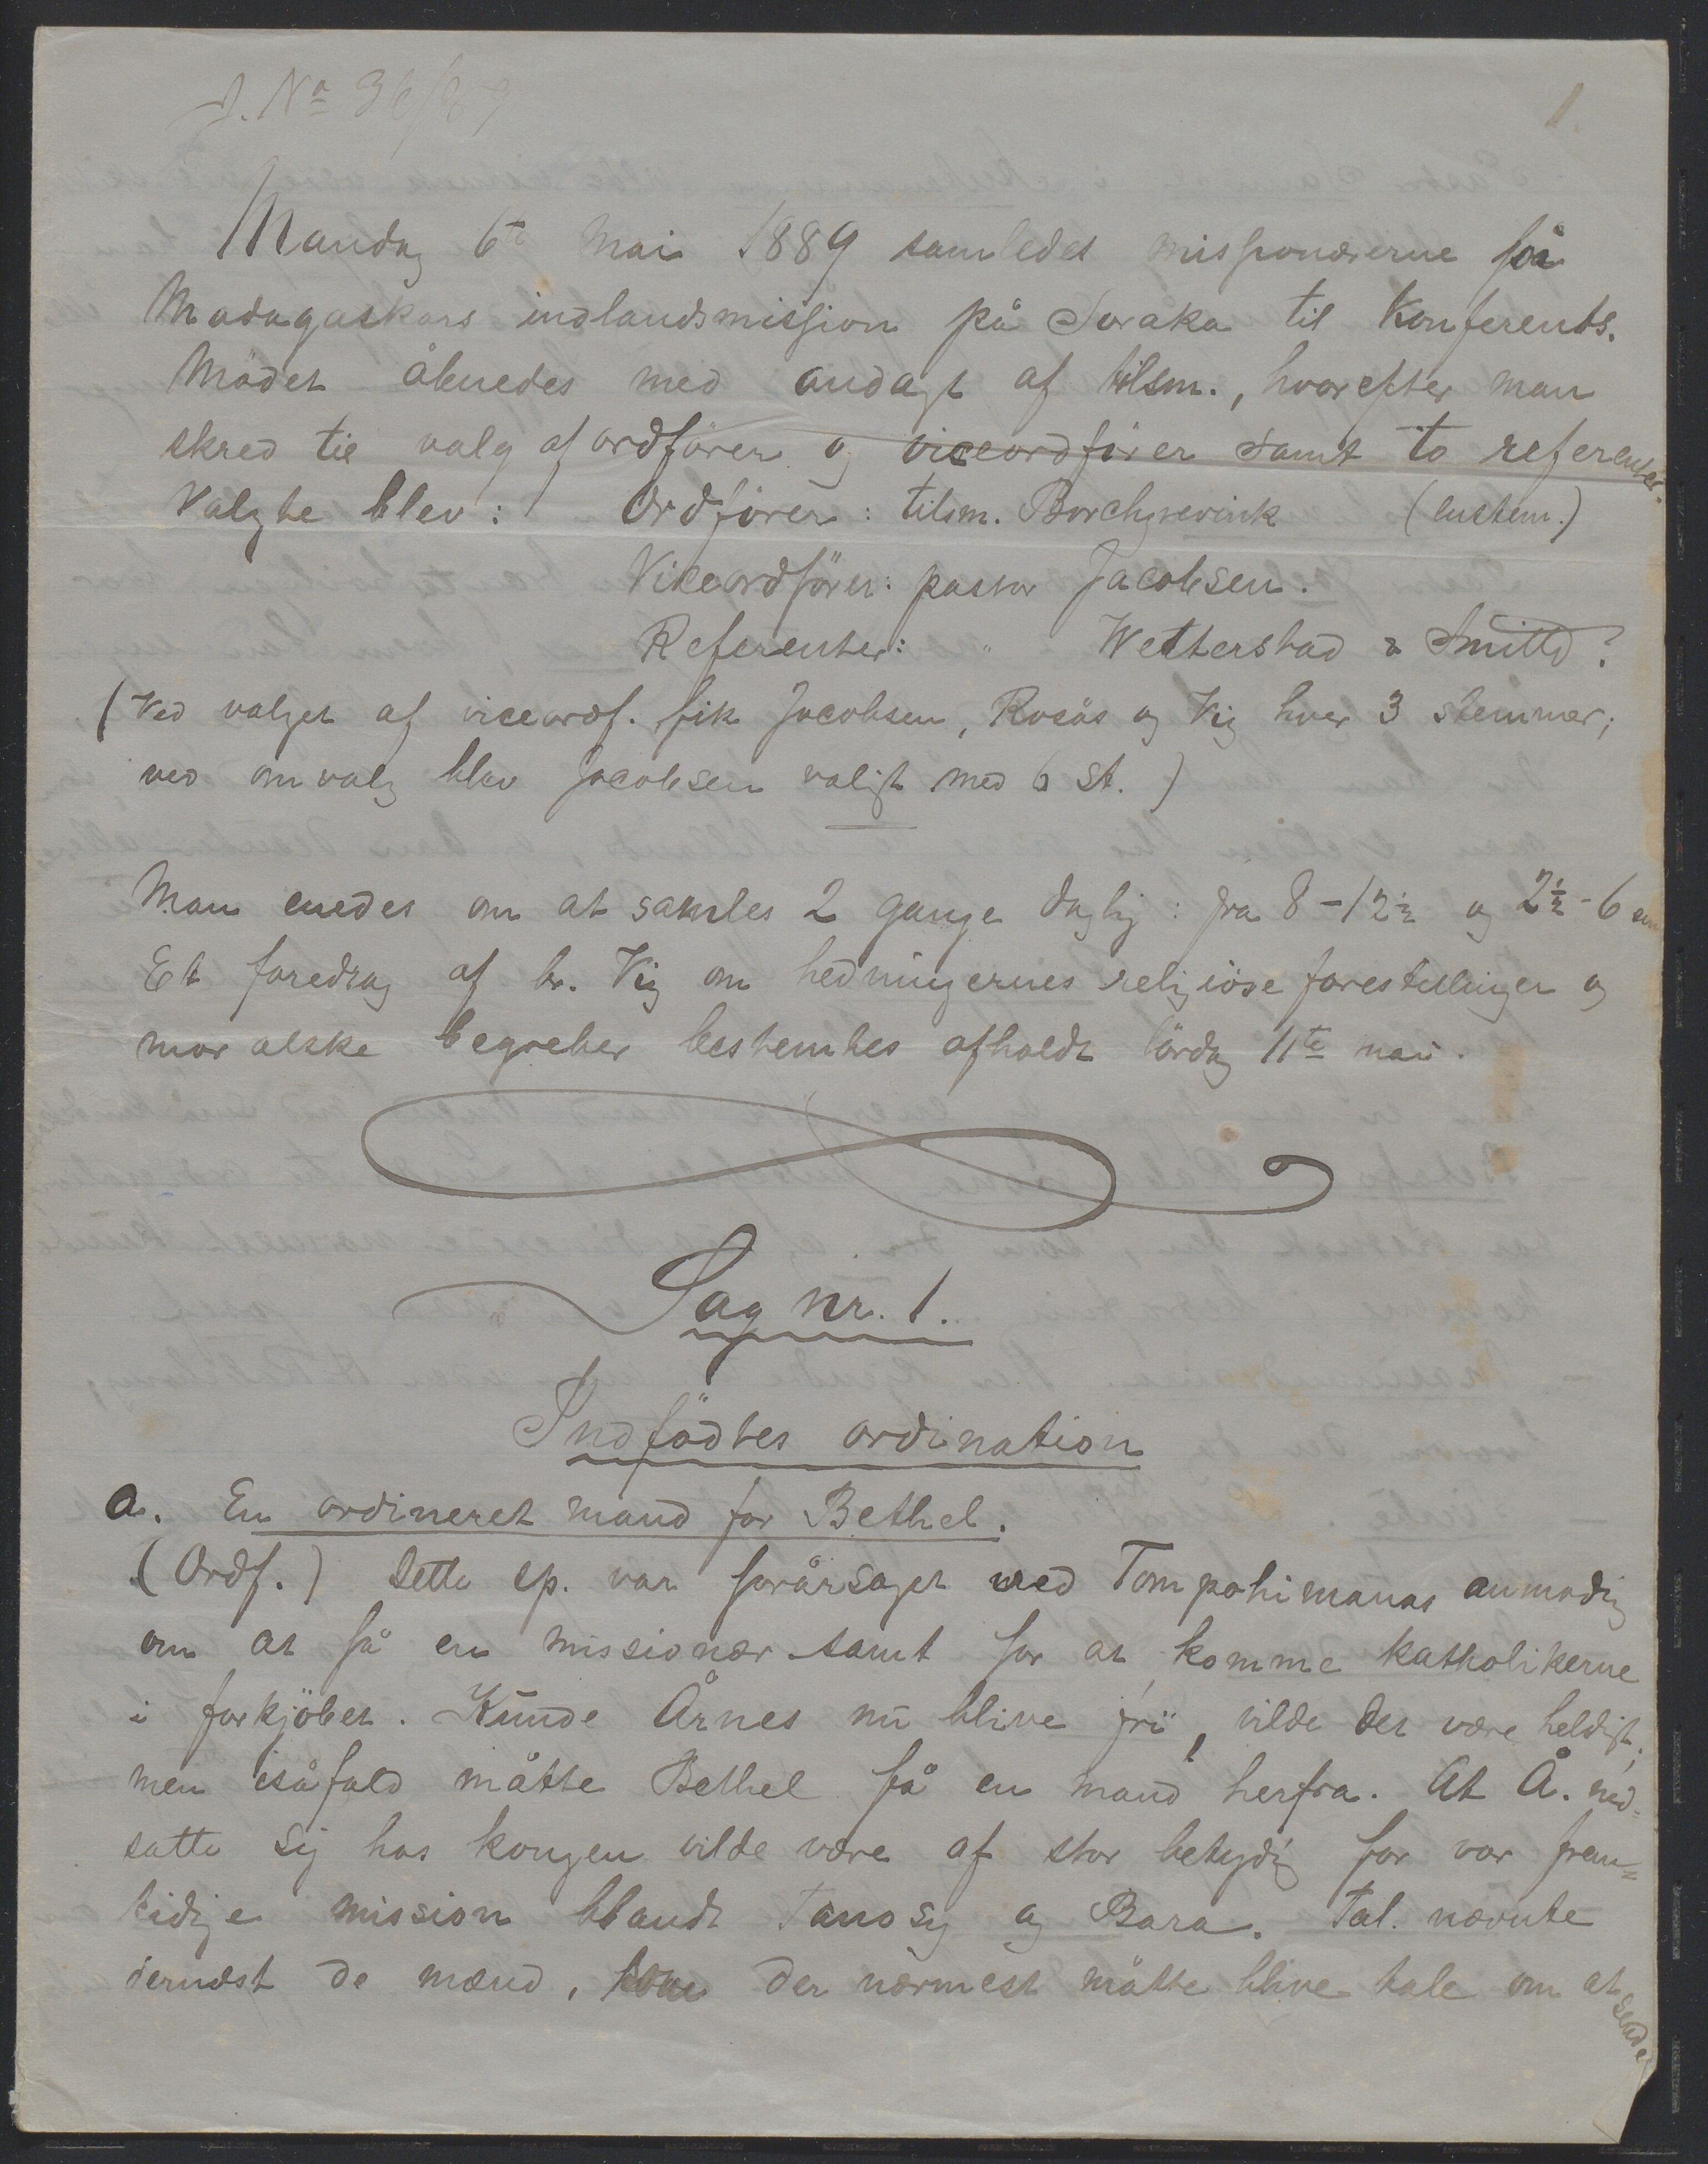 J. No 36/89
1.
Mandag 6te Mai 1889 samledes missionærerne på
Madagaskars indlandsmission på Soraka til Konferents.
Mödet åbnedes med andagt af tilsm., hvorefter man
skred til valg af ordförer og viceordförer samt to referenter.
Valgte blev: Ordförer: tilsm. Borchgrevink (enstem.)
Viceordförer: pastor Jacobsen.
Referenter: " Wetterstad & Smith?
(Ved valget af viceordf. fik Jacobsen, Rosås og Vig hver 3 stemmer;
ved omvalg blev Jacobsen valgt med 6 st.)
Man enedes om at samles 2 gange daglig: fra 8-12½ og 2½-6 em
Et foredrag af br. Vig om hedningernes religiöse forestillinger og
moralske begreber bestemtes afholdt lördag 11te mai.
Sag nr. 1.
Indfödtes ordination
a. En ordineret mand for Bethel.
(Ordf.) Dette sp. var forårsaget ved Tompohimanas anmodng
om at få en missionær samt for at komme katholikerne
i forkjöbet. Kunde Årnes nu blive fri, vilde det være heldigt;
men isåfald måtte Bethel få en mand herfra. At Å. ned-
satte sig hos kongen vilde være af stor betydng for vor frem=
tidige mission blandt Tanosy og Bara. Tal. nævnte
dernæst de mænd, som der nærmest måtte blive tale om at sende